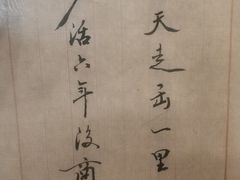 天走五一里
活六年没商